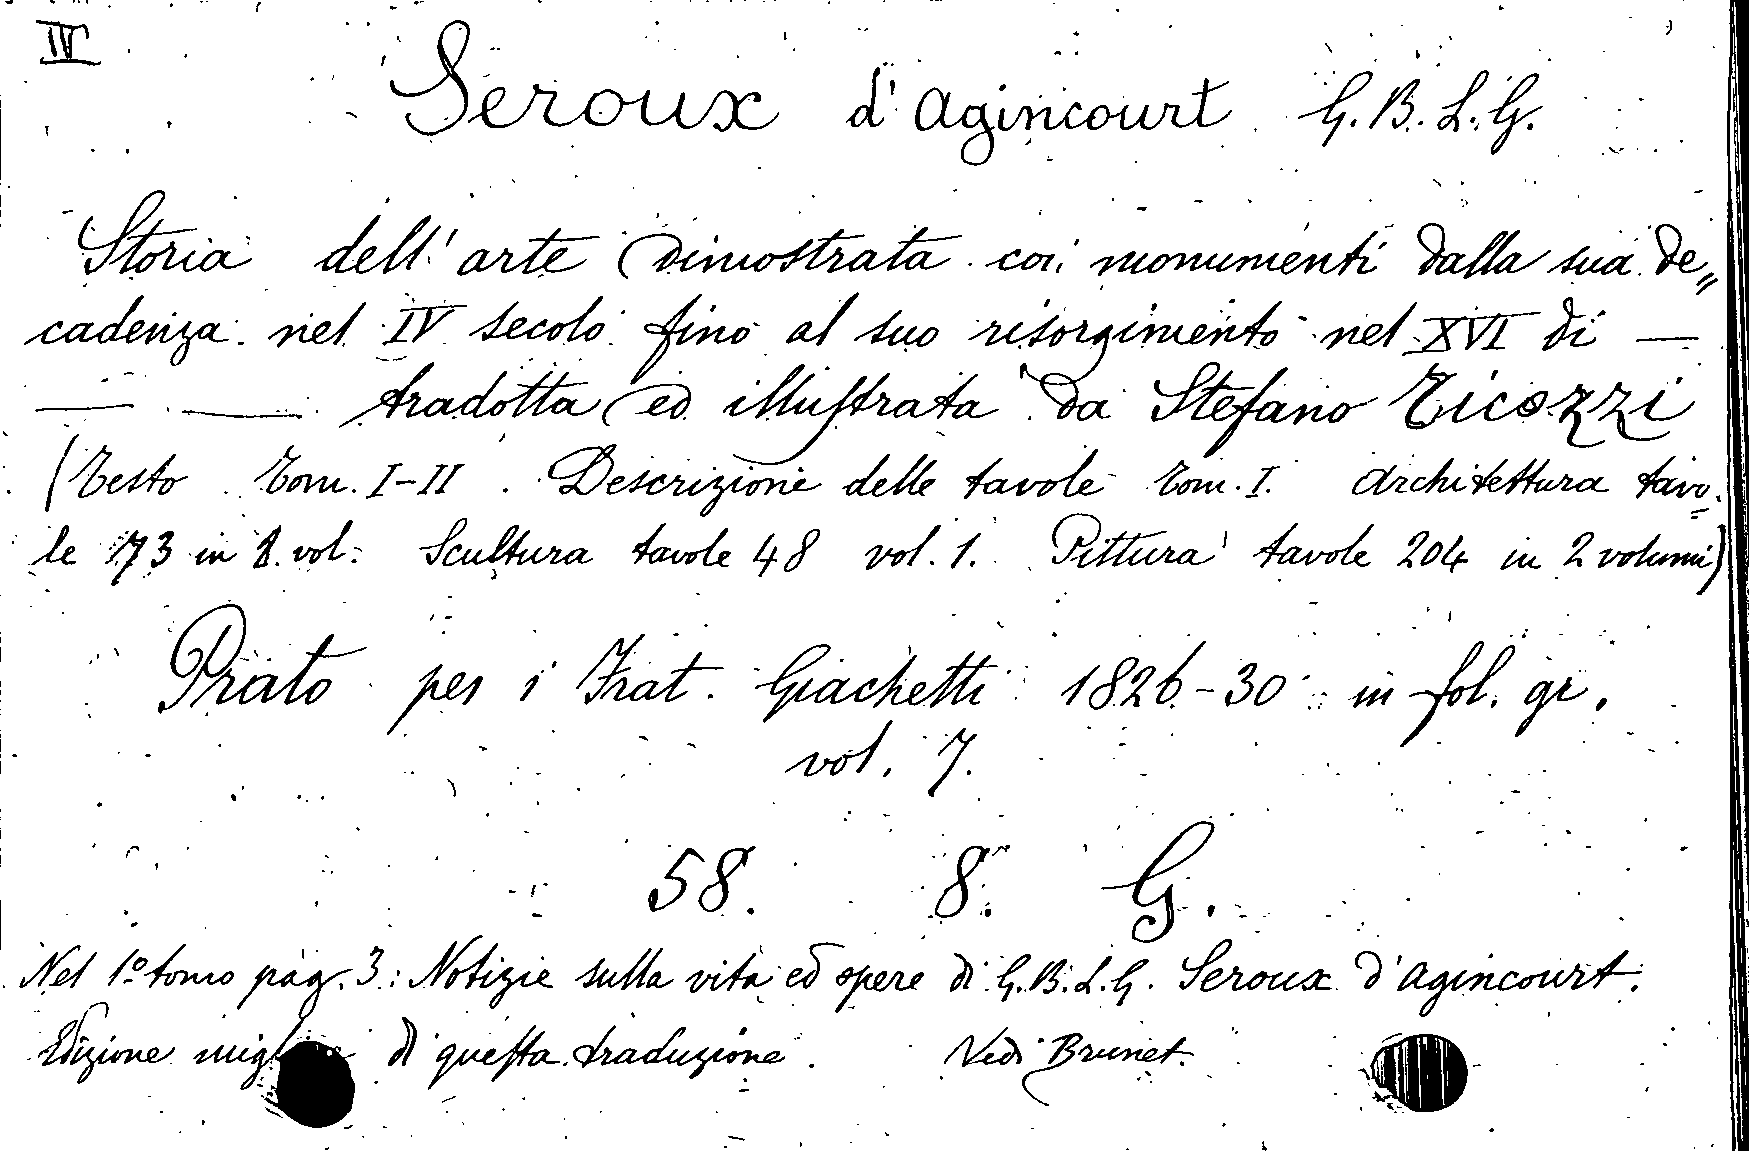 IV
Seroux d'Agincourt G. B. L. G.
Storia dell'arte dimostrata coi monumenti dalla sua de„
cadenza nel IV secolo fino al suo risorgimento nel XVI di —
— — tradotta ed illustrata da Stefano Ticozzi
(Testo Tom. I-II. Descrizione delle tavole Tom. I. Architettura tavo=
le 73 in 1. vol. Scultura tavole 48 vol. 1. Pittura tavole 204 in 2 volumi)
Prato per i Frat. Giachetti 1826-30 in fol. gr.
vol. 7.
58. 8. G.
Nel 1º tomo pag. 3: Notizie sulla vita ed opere di G. B. L. G. Seroux d'Agincourt.
Edizione migliore di questa traduzione. Vedi Brunet.